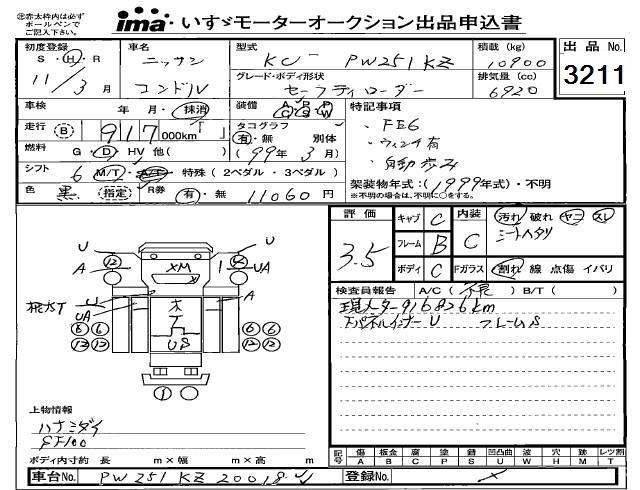 ㊟赤太枠内は必ず
ボールペンで
ご記入下さい。
ima・いすゞモーターオークション出品申込書
初度登録 車名 型式 積載 (kg) 出品 No.
S・H・R ニッサン KC- PW251KZ 10900 3211
11/3月 コンドル グレード・ボディ形状 排気量 (cc)
セーフティローダー 6920
車検 年 月・抹消 装備 A P P C S W 特記事項
走行 B 917 000km タコグラフ 有・無 別体 ・FE6
燃料 G・D・HV 他( ) (99年 3月) ・ウィンチ有
シフト 6 M/T・A/T・特殊 (2ペダル・3ペダル) ・自動歩み
色 黒 指定 R券 有・無 11060円 架装物年式:(1999年式)・不明
※不明の場合は、不明に○をする。
評価 キャブ C 内装 汚れ 破れ ヤニ スレ
3.5 フレーム B C シートヘタリ
ボディ C Fガラス 割れ 線 点傷 イバリ
検査員報告 A/C(不良) B/T( )
現メーター916826km
天パネルインナーU フレームS
U U
12 12
A XM UA
A
U
UA 木
T
US
6 6 6 6
12 12 12 12
1
上物情報
ハナミダイ
ボディ内寸約 長 m×幅 m×高 m
記号 傷 板金 腐 塗 錆 凹凸曲 波 穴 跡 レツ割
A B C P S U W H M T
車台No. PW251KZ 20018 登録No.